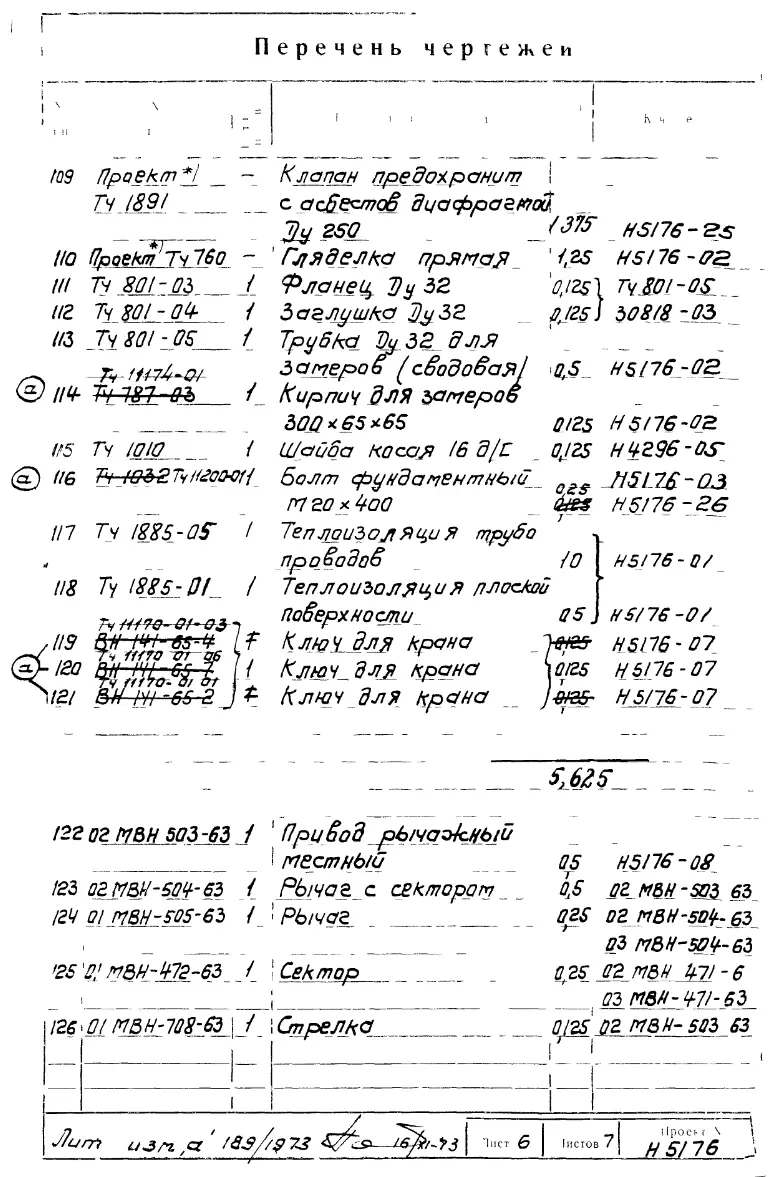 Перечень чертежей
109 Проект*) – Клапан предохранит
Тч 1891 с асбестов диафрагмой
Ду 250 1,375 Н5176-25
110 Проект*) Тч 760 – Гляделка прямая 1,25 Н5176-02
111 Тч 801-03 1 Фланец Ду 32 0,125 Тч 801-05
112 Тч 801-04 1 Заглушка Ду 32 0,125 30818-03
113 Тч 801-05 1 Трубка Ду 32 для
замеров (сводовая) 0,5 Н5176-02
Тч 11174-01
а 114 Тч 787-03 1 Кирпич для замеров
300×65×65 0,125 Н5176-02
115 Тч 1010 1 Шайба косая 16 д/Г 0,125 Н4296-05
а 116 Тч 1032 Тч 11200-01 1 Болт фундаментный 0,25 Н5176-03
М20×400 0,125 Н5176-26
117 Тч 1885-05 1 Теплоизоляция трубо
проводов 10 Н5176-01
118 Тч 1885-01 1 Теплоизоляция плоской
поверхности 0,5 Н5176-01
Тч 11170-01-03
119 ВН 141-65-4 1 Ключ для крана 0,125 Н5176-07
Тч 11170 01 06
а 120 ВН 141-65-1 1 Ключ для крана 0,125 Н5176-07
Тч 11170-01 01
121 ВН 141-65-2 1 Ключ для крана 0,125 Н5176-07
5,625
122 02 МВН 503-63 1 Привод рычажный
местный 0,5 Н5176-08
123 02 МВН-504-63 1 Рычаг с сектором 0,5 02 МВН-503 63
124 01 МВН-505-63 1 Рычаг 0,25 02 МВН-504-63
03 МВН-504-63
125 01 МВН-472-63 1 Сектор 0,25 02 МВН 471-6
03 МВН-471-63
126 01 МВН-708-63 1 Стрелка 0,125 02 МВН-503 63
Лит изм „а" 189/1973 16/XI-73 Лист 6 Листов 7 Проект N
Н 5176